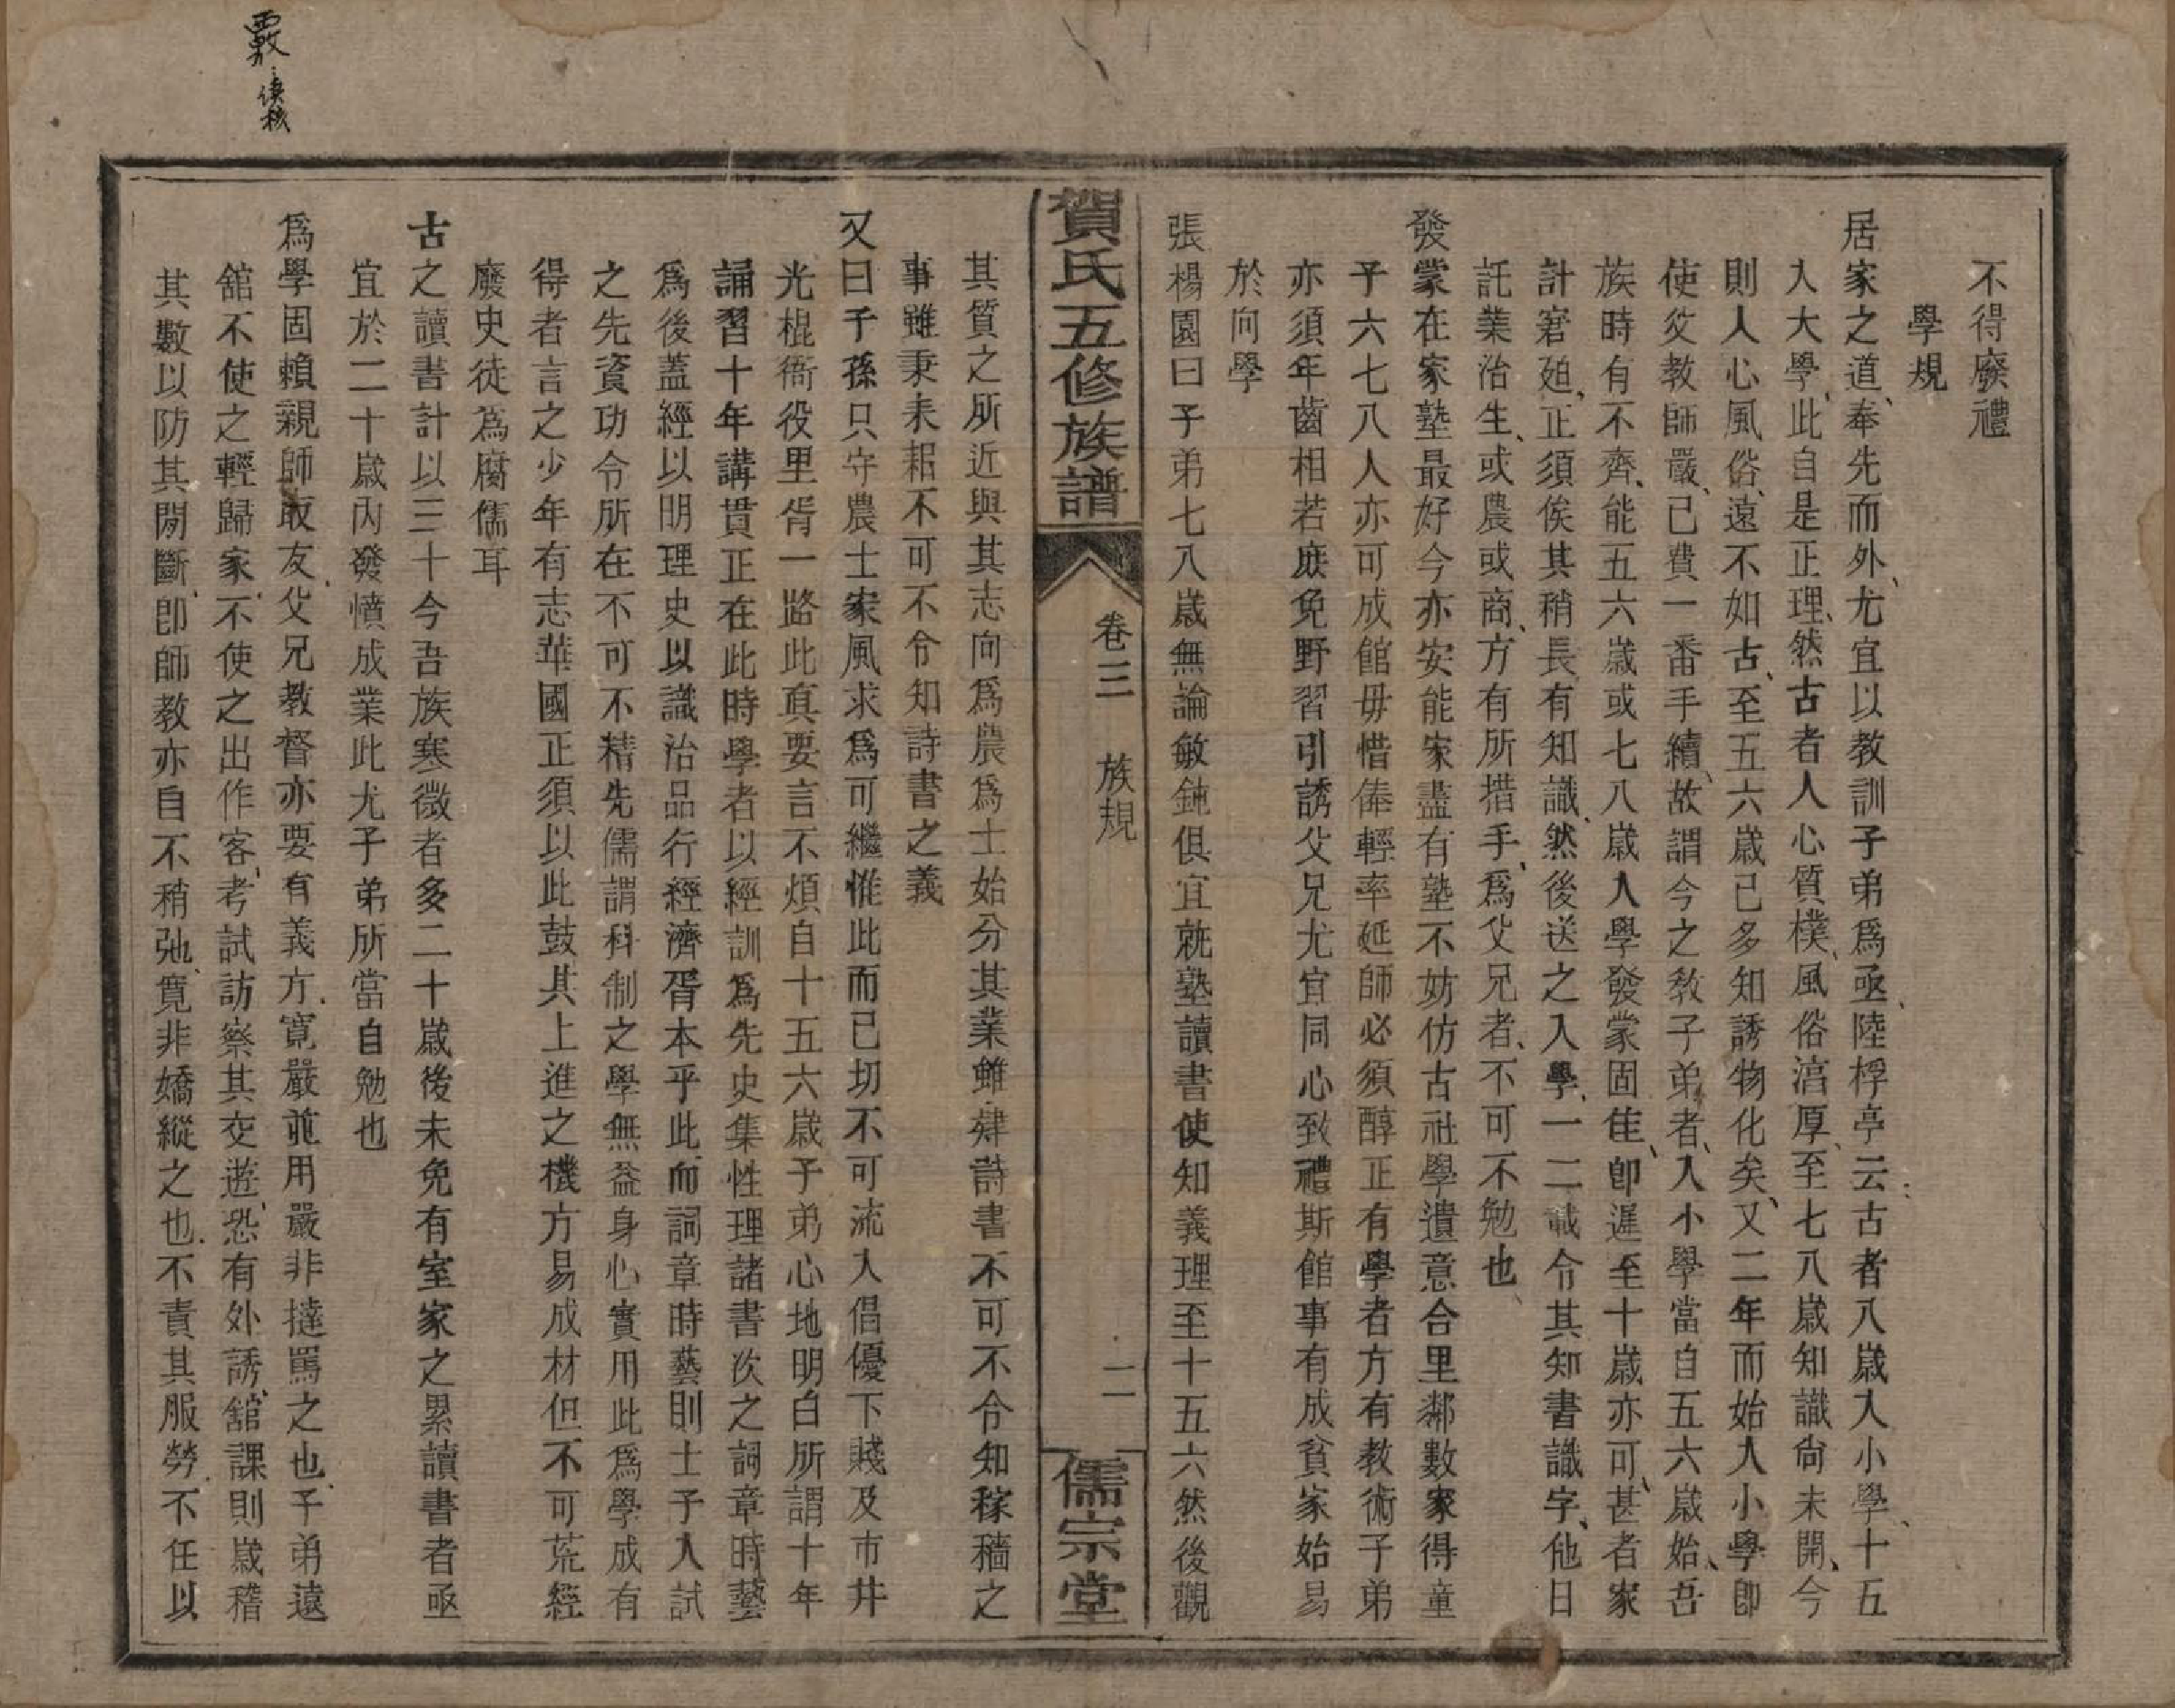 不得廢禮
學規
居家之道奉先而外尤宜以教訓子弟爲亟陸桴亭云古者八歲入小學十五
入大學此自是正理然古者人心質樸風俗湻厚至七八歲知識尙未開今
則人心風俗遠不如古至五六歲已多知誘物化矣又二年而始入小學卽
使父教師嚴已費一番手續故謂今之教子弟者入小學當自五六歲始吾
族時有不齊能五六歲或七八歲入學發蒙固佳卽遲至十歲亦可甚者家
計窘廹正須俟其稍長有知識然後送之入學一二載令其知書識字他日
託業治生或農或商方有所措手爲父兄者不可不勉也
發蒙在家塾最好今亦安能家盡有塾不妨仿古社學遺意合里鄰數家得童
子六七八人亦可成館毋惜俸輕率延師必須醇正有學者方有教術子弟
亦須年齒相若庶免野習引誘父兄尤宜同心致禮斯館事有成貧家始易
於向學
張楊園曰子弟七八歲無論敏鈍俱宜就塾讀書使知義理至十五六然後觀
賀氏五修族譜
卷三
族規
二
儒宗堂
其質之所近與其志向爲農爲士始分其業雖肄詩書不可不令知稼穡之
事雖秉耒耜不可不令知詩書之義
又曰子孫只守農士家風求爲可繼惟此而已切不可流入倡優下賤及市井
光棍衙役里胥一路此真要言不煩自十五六歲子弟心地明白所謂十年
誦習十年講貫正在此時學者以經訓爲先史集性理諸書次之詞章時藝
爲後蓋經以明理史以識治品行經濟胥本乎此而詞章時藝則士子入試
之先資功令所在不可不精先儒謂科制之學無益身心實用此爲學成有
得者言之少年有志華國正須以此鼓其上進之機方易成材但不可荒經
廢史徒爲腐儒耳
古之讀書計以三十今吾族寒微者多二十歲後未免有室家之累讀書者亟
宜於二十歲內發憤成業此尤子弟所當自勉也
爲學固賴親師取友父兄教督亦要有義方寛嚴並用嚴非撻罵之也子弟遠
舘不使之輕歸家不使之出作客考試訪察其交遊恐有外誘舘課則歲稽
其數以防其閒斷卽師教亦自不稍弛寛非嬌縱之也不責其服勞不任以